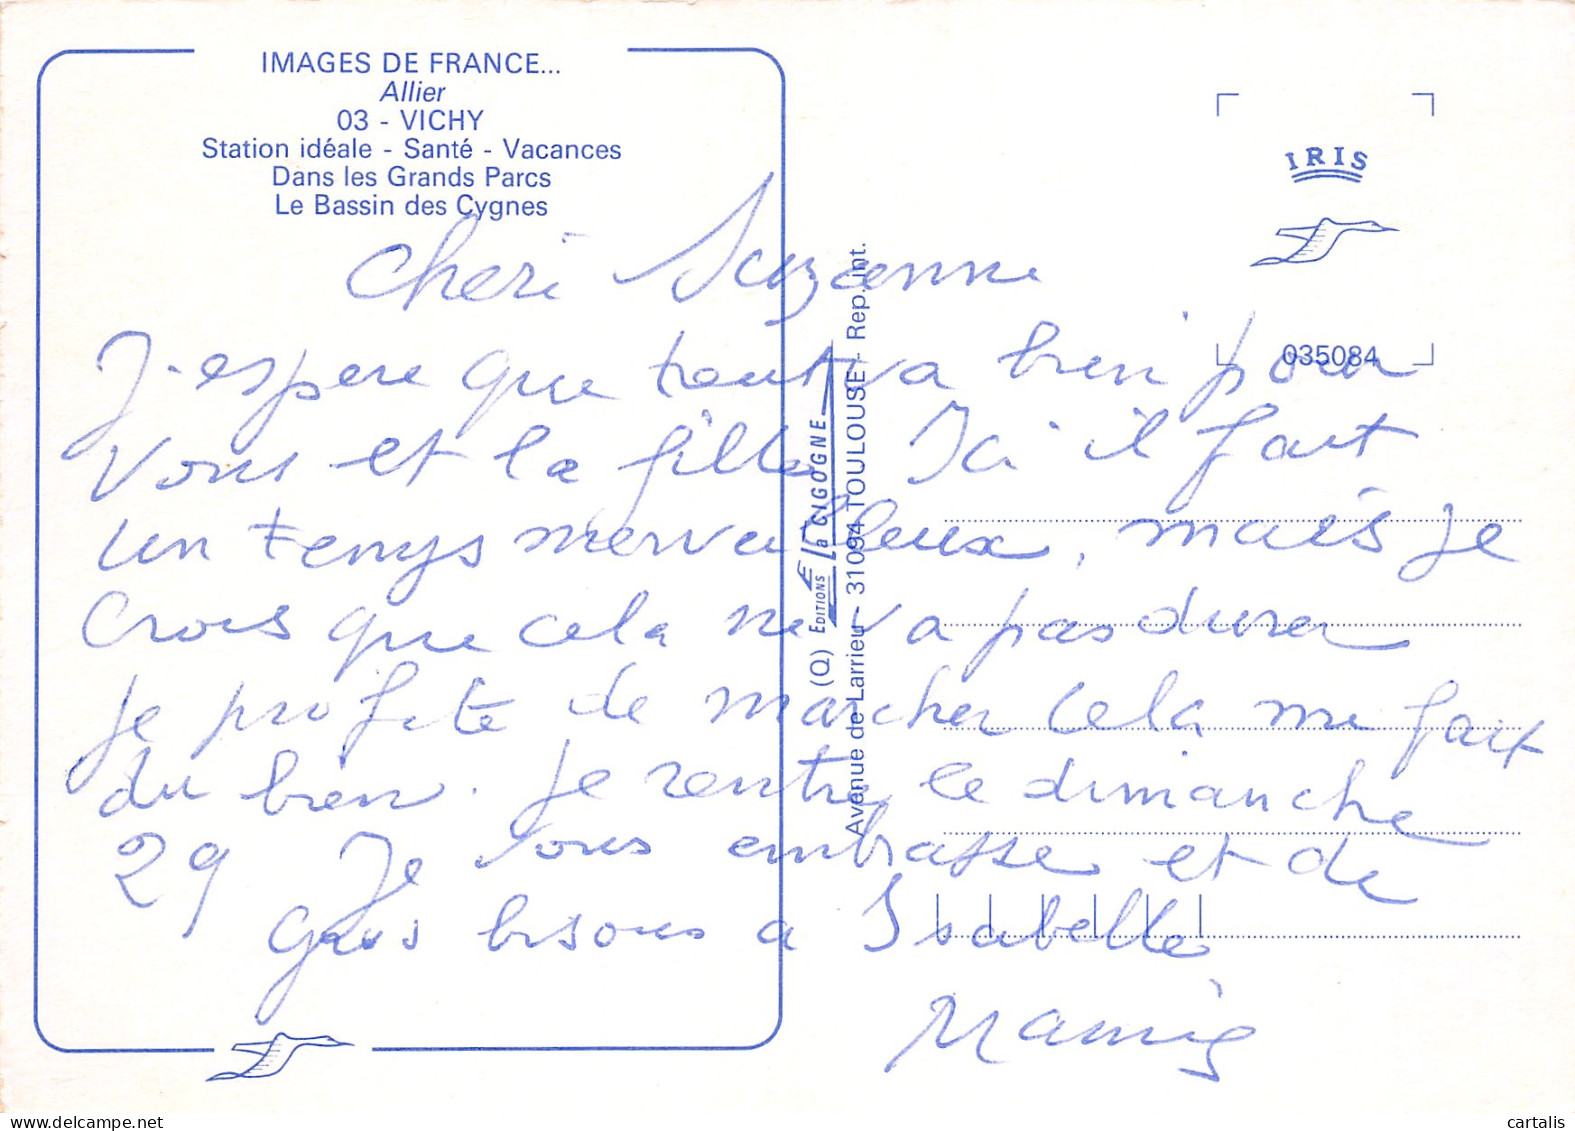 IMAGES DE FRANCE...
Allier
03 - VICHY
Station idéale - Santé - Vacances
Dans les Grands Parcs
Le Bassin des Cygnes
IRIS
035084
(Q) EDITIONS La CIGOGNE
Avenue de Larrieu - 31094 TOULOUSE - Rep. int.
Cheri Suzanne
J'espere que tout va bien pour
vous et la fille Ici il fait
un temps merveilleux, mais je
crois que cela ne va pas durer
je profite de marcher cela me fait
du bien. je rentre le dimanche
29 Je vous embrasse et de
gros bisous a Isabelle
cartalis
delcampe.net